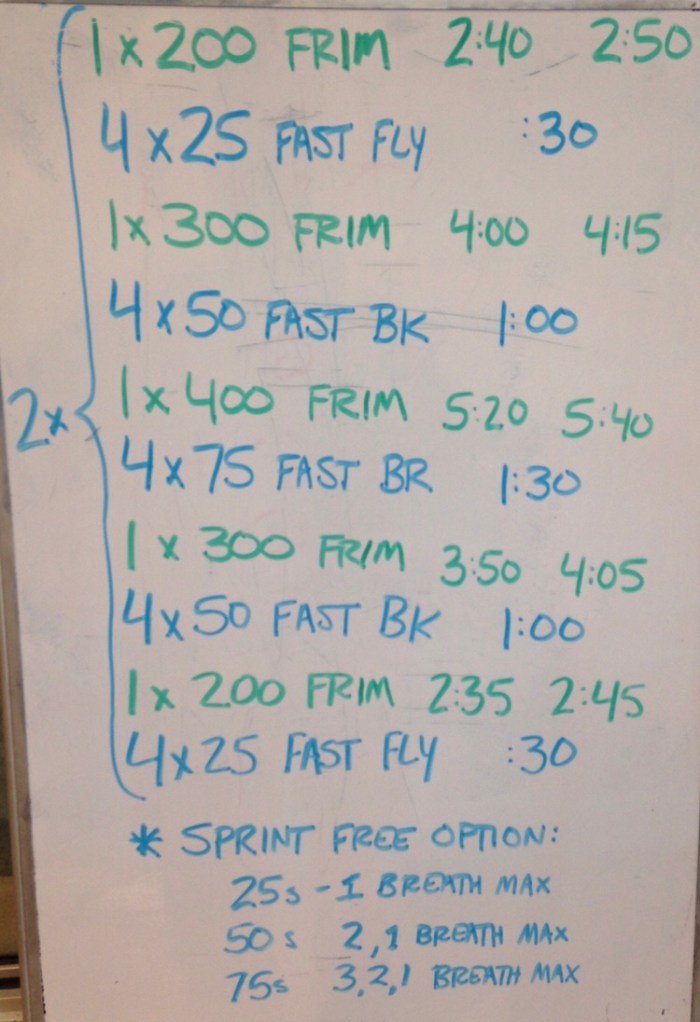 1 x 200 FRIM 2:40 2:50
4 x 25 FAST FLY :30
1 x 300 FRIM 4:00 4:15
4 x 50 FAST BK 1:00
2x
1 x 400 FRIM 5:20 5:40
4 x 75 FAST BR 1:30
1 x 300 FRIM 3:50 4:05
4 x 50 FAST BK 1:00
1 x 200 FRIM 2:35 2:45
4 x 25 FAST FLY :30
* SPRINT FREE OPTION:
25s - 1 BREATH MAX
50s 2,1 BREATH MAX
75s 3,2,1 BREATH MAX